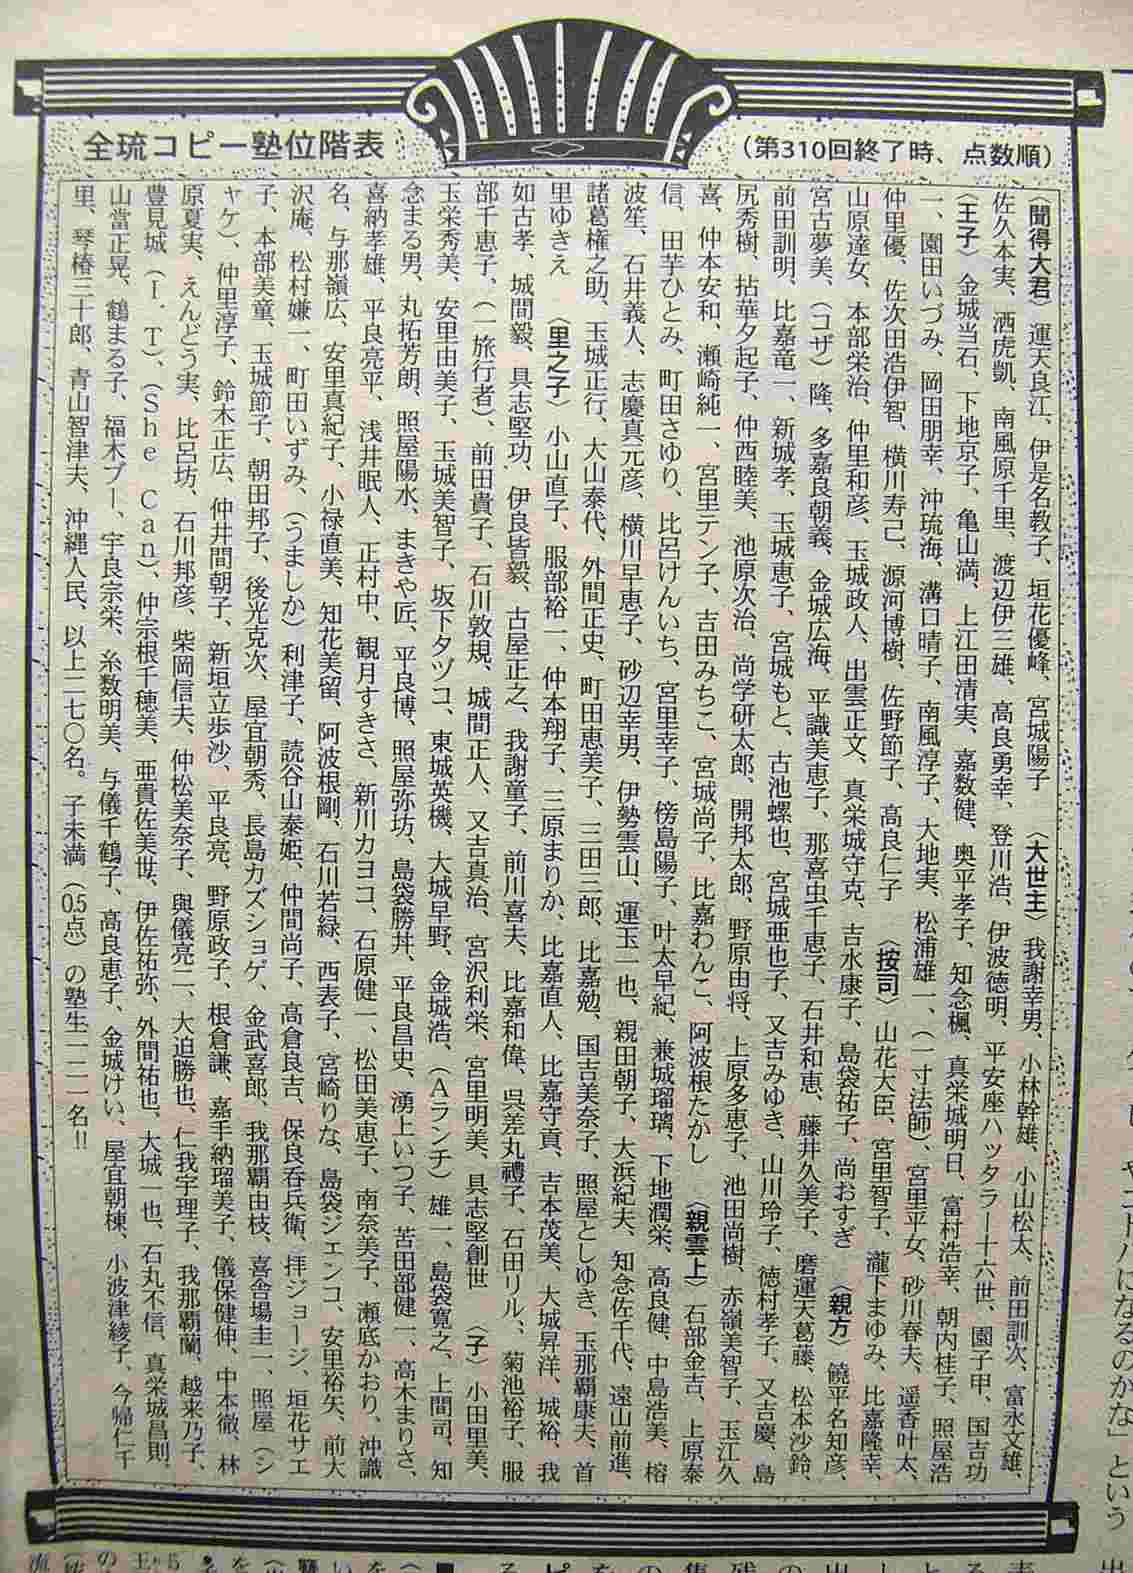 全琉コピー塾位階表
（第310回終了時、点数順）
〈聞得大君〉運天良江、伊是名教子、垣花優峰、宮城陽子　〈大世主〉我謝幸男、小林幹雄、小山松太、前田訓次、富永文雄、
佐久本実、洒虎凱、南風原千里、渡辺伊三雄、高良勇幸、登川浩、伊波徳明、平安座ハッタラー十六世、園子甲、国吉功
〈王子〉金城当石、下地京子、亀山満、上江田清実、嘉数健、奥平孝子、知念楓、真栄城明日、富村浩幸、朝内桂子、照屋浩
一、園田いづみ、岡田朋幸、沖琉海、溝口晴子、南風淳子、大地実、松浦雄一、（一寸法師）、宮里平女、砂川春夫、遥香叶太、
仲里優、佐次田浩伊智、横川寿己、源河博樹、佐野節子、高良仁子　〈按司〉山花大臣、宮里智子、瀧下まゆみ、比嘉隆幸、
山原達女、本部栄治、仲里和彦、玉城政人、出雲正文、真栄城守克、吉水康子、島袋祐子、尚おすぎ　〈親方〉饒平名知彦、
宮古夢美、（コザ）隆、多嘉良朝義、金城広海、平識美恵子、那喜虫千恵子、石井和恵、藤井久美子、磨運天葛藤、松本沙鈴、
前田訓明、比嘉竜一、新城孝、玉城恵子、宮城もと、古池螺也、宮城亜也子、又吉みゆき、山川玲子、徳村孝子、又吉慶、島
尻秀樹、拈華夕起子、仲西睦美、池原次治、尚学研太郎、開邦太郎、野原由将、上原多恵子、池田尚樹、赤嶺美智子、玉江久
喜、仲本安和、瀬崎純一、宮里テン子、吉田みちこ、宮城尚子、比嘉わんこ、阿波根たかし　〈親雲上〉石部金吉、上原泰
信、田芋ひとみ、町田さゆり、比呂けんいち、宮里幸子、傍島陽子、叶太早紀、兼城瑠璃、下地潤栄、高良健、中島浩美、榕
波笙、石井義人、志慶真元彦、横川早恵子、砂辺幸男、伊勢雲山、運玉一也、親田朝子、大浜紀夫、知念佐千代、遠山前進、
諸葛権之助、玉城正行、大山泰代、外間正史、町田恵美子、三田二郎、比嘉勉、国吉美奈子、照屋としゆき、玉那覇康夫、首
里ゆきえ　〈里之子〉小山直子、服部裕一、仲本翔子、三原まりか、比嘉直人、比嘉守貢、吉本茂美、大城昇洋、城裕、我
如古孝、城間毅、具志堅功、伊良皆毅、古屋正之、我謝童子、前川喜夫、比嘉和偉、呉差丸禮子、石田リル、菊池裕子、服
部千恵子、（一旅行者）、前田貴子、石川敦規、城間正人、又吉真治、宮沢利栄、宮里明美、具志堅創世　〈子〉小田里美、
玉栄秀美、安里由美子、玉城美智子、坂下タヅコ、東城英機、大城早野、金城浩、（Aランチ）雄一、島袋寛之、上間司、知
念まる男、丸拓芳朗、照屋陽水、まきや匠、平良博、照屋弥坊、島袋勝丼、平良昌史、湧上いつ子、苫田部健一、高木まりさ、
喜納孝雄、平良亮平、浅井眠人、正村中、観月すきさ、新川カヨコ、石原健一、松田美恵子、南奈美子、瀬底かおり、沖識
名、与那嶺広、安里真紀子、小禄直美、知花美留、阿波根剛、石川若緑、西表子、宮崎りな、島袋ジェンコ、安里裕矢、前大
沢庵、松村嫌一、町田いずみ、（うましか）利津子、読谷山泰姫、仲間尚子、高倉良吉、保良呑兵衛、拝ジョージ、垣花サエ
子、本部美童、玉城節子、朝田邦子、後光克次、屋宜朝秀、長島カズショゲ、金武喜郎、我那覇由枝、喜舎場圭一、照屋（シ
ャケ）、仲里淳子、鈴木正広、仲井間朝子、新垣立歩沙、平良亮、野原政子、根倉謙、嘉手納瑠美子、儀保健伸、中本徹、林
原夏実、えんどう実、比呂坊、石川邦彦、柴岡信夫、仲松美奈子、與儀亮二、大迫勝也、仁我宇理子、我那覇蘭、越来乃子、
豊見城（I．T）、（She Can）、仲宗根千穂美、亜貴佐美世、伊佐祐弥、外間祐也、大城一也、石丸不信、真栄城昌則、
山當正晃、鶴まる子、福木ブー、宇良宗栄、糸数明美、与儀千鶴子、高良恵子、金城けい、屋宜朝棟、小波津綾子、今帰仁千
里、琴椿三十郎、青山智津夫、沖縄人民、以上二七〇名。子未満（0.5点）の塾生一二一名!!